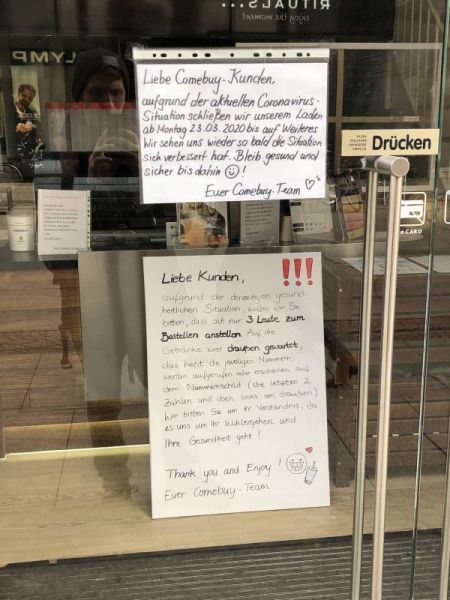 RITUALS...
enjoy the moment
LYMP
Liebe Comebuy-Kunden,
aufgrund der aktuellen Coronavirus-
Situation schließen wir unserem Laden
ab Montag 23.03.2020 bis auf Weiteres
Wir sehen uns wieder so bald die Situation
sich verbessert hat. Bleib gesund und
sicher bis dahin !
Euer Comebuy-Team
Drücken
CARD
Liebe Kunden, !!!
aufgrund der derzeitigen gesund-
heitlichen Situation, wollen wir Sie
bitten, dass sich nur 3 Leute zum
Bestellen anstellen. Auf die
Getränke wird draußen gewartet,
das heißt die jeweiligen Nummern
werden aufgerufen oder erscheinen auf
dem Nummernschild (die letzten 2
Zahlen und oben links von draußen)
Wir bitten Sie um ihr Verständnis, da
es uns um Ihr Wohlergehen und
Ihre Gesundheit geht!
Thank you and Enjoy!
Euer Comebuy-Team